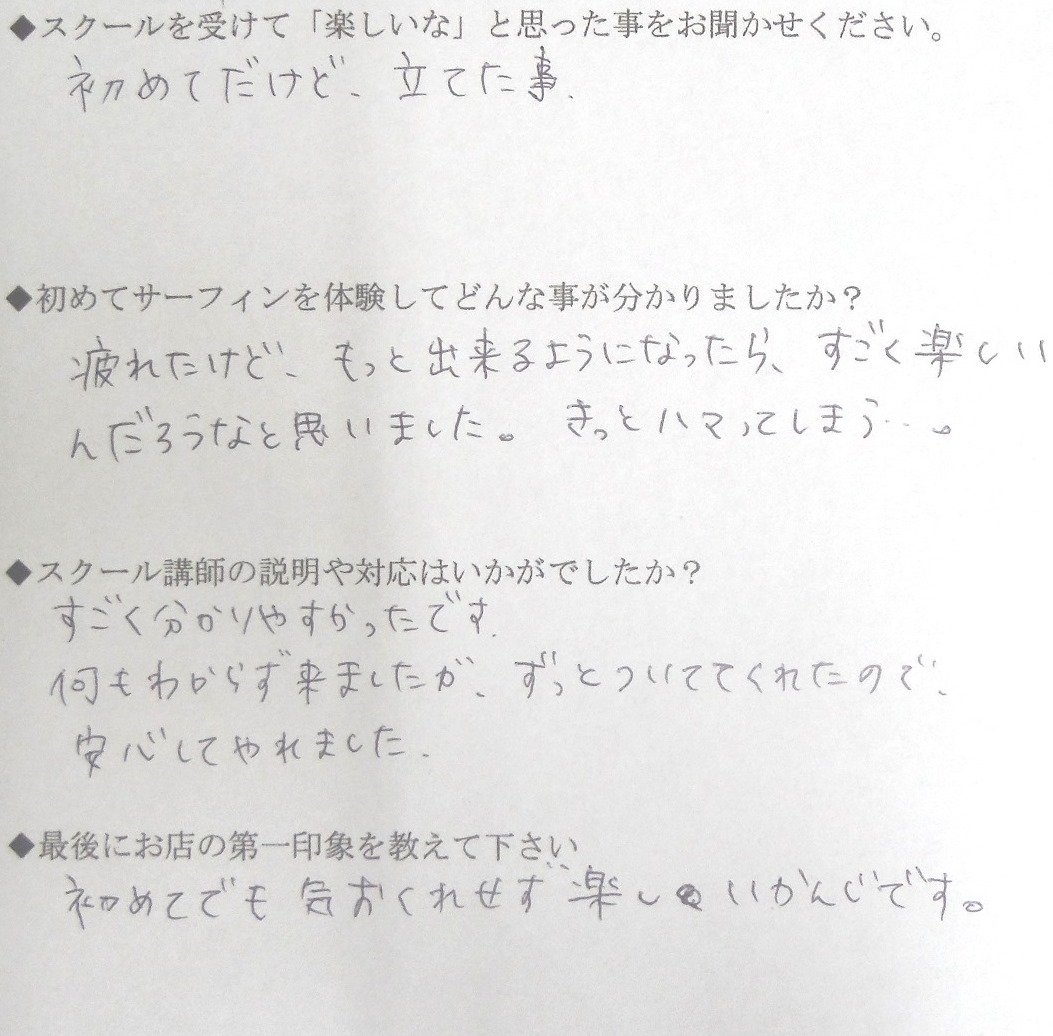 ◆スクールを受けて「楽しいな」と思った事をお聞かせください。
初めてだけど、立てた事.
◆初めてサーフィンを体験してどんな事が分かりましたか?
疲れたけど、もっと出来るようになったら、すごく楽しい
んだろうなと思いました。きっとハマってしまう…。
◆スクール講師の説明や対応はいかがでしたか?
すごく分かりやすかったです.
何もわからず来ましたが、ずっとついててくれたので、
安心してやれました.
◆最後にお店の第一印象を教えて下さい
初めてでも気おくれせず楽しいかんじです。